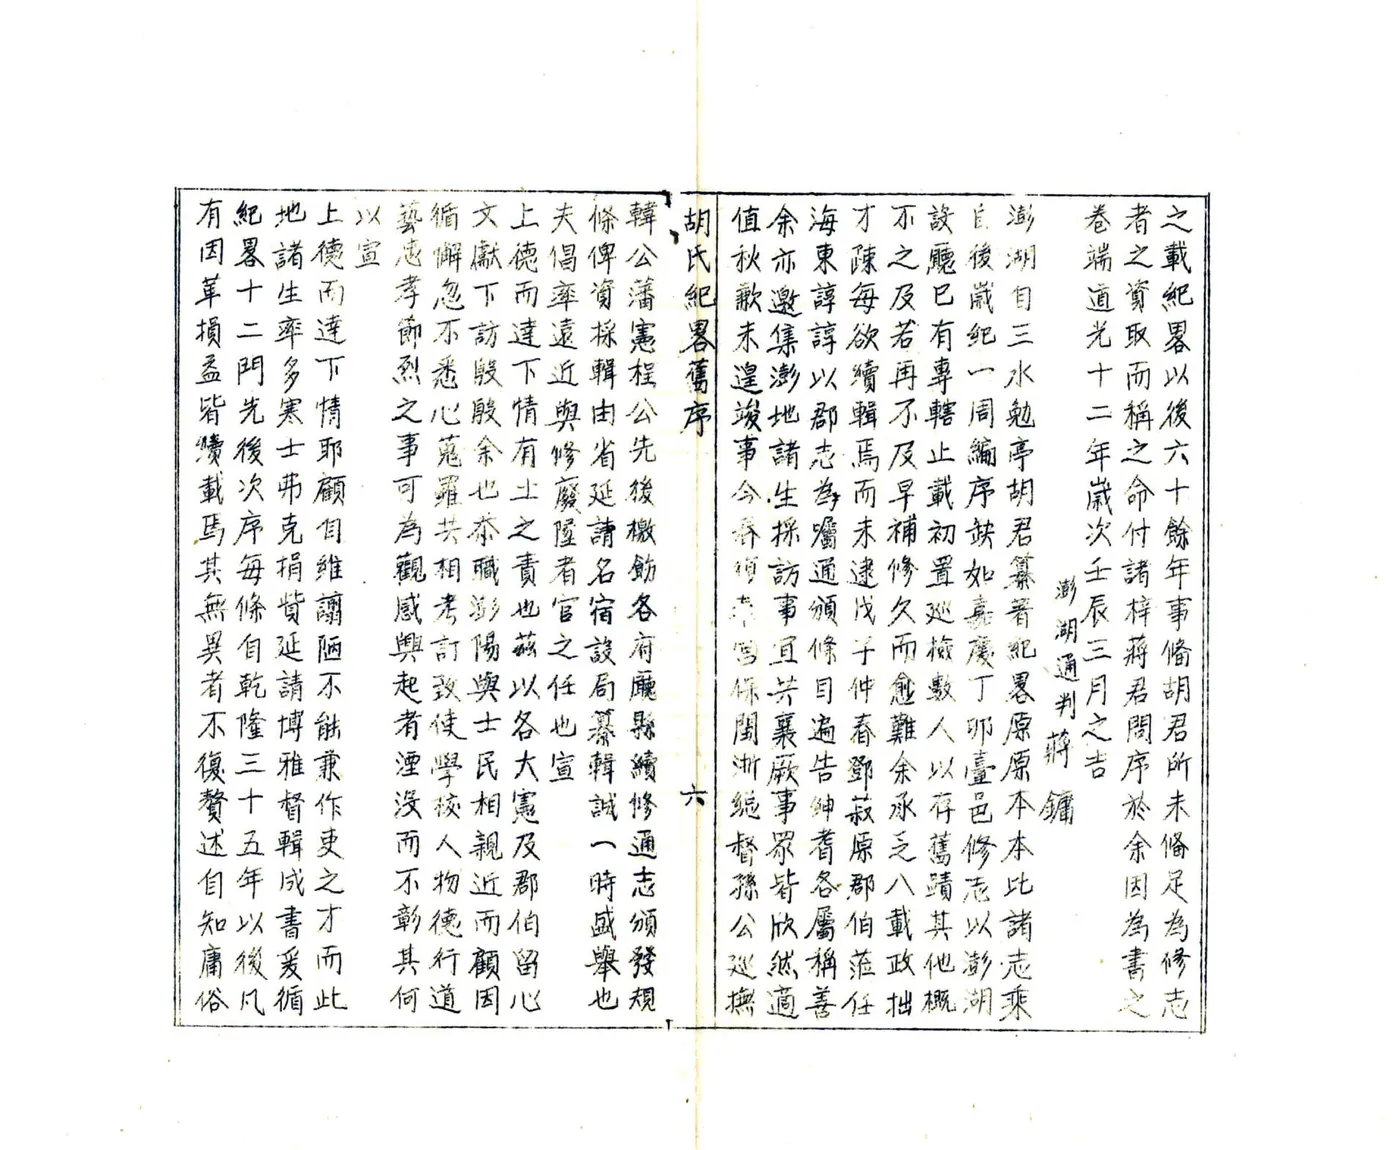 之載紀畧以後六十餘年事俻胡君所未俻足為修志
者之資取而稱之命付諸梓蔣君問序於余因為書之
卷端道光十二年歲次壬辰三月之吉
澎湖通判蔣鏞
澎湖自三水勉亭胡君纂著紀畧原原本本比諸志乘
自後歲紀一周編序缺如嘉慶丁卯臺邑修志以澎湖
設廳已有專轄止載初置巡檢數人以存舊蹟其他概
不之及若再不及早補修久而愈難余承乏八載政拙
才疎每欲續輯焉而未逮戊子仲春鄧菽原郡伯蒞任
海東諄諄以郡志為囑通頒條目遍告紳耆各屬稱善
余亦邀集澎地諸生採訪事宜共襄厥事眾皆欣然適
值秋歉未遑竣事今春宮保閩浙總督孫公巡撫
胡氏紀畧舊序
六
韓公藩憲程公先後檄飭各府廳縣續修通志頒發規
條俾資採輯由省延請名宿設局纂輯誠一時盛舉也
夫倡率遠近與修廢墜者官之任也宣
上德而達下情有土之責也茲以各大憲及郡伯留心
文獻下訪殷殷余也忝職澎陽與士民相親近而顧因
循懈忽不悉心蒐羅共相考訂致使學校人物德行道
藝忠孝節烈之事可為觀感興起者湮没而不彰其何
以宣
上德而達下情耶顧自維譾陋不能兼作吏之才而此
地諸生率多寒士弗克捐貲延請博雅督輯成書爰循
紀畧十二門先後次序每條自乾隆三十五年以後凡
有因革損益皆續載焉其無異者不復贅述自知庸俗